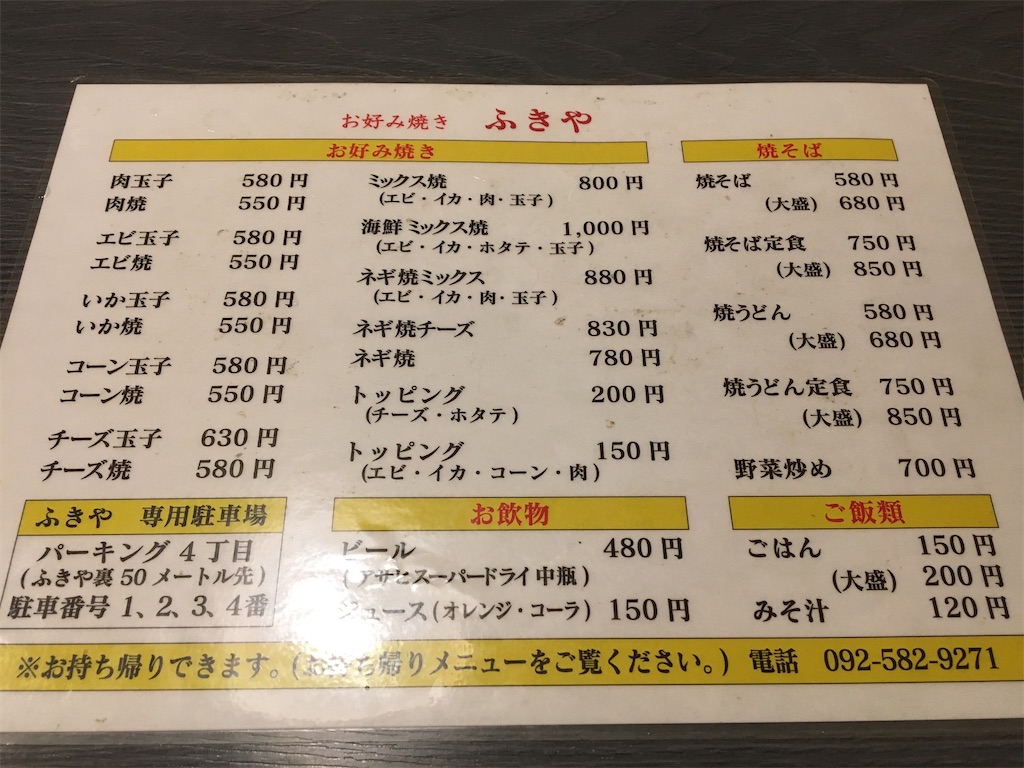 お好み焼き ふきや
お好み焼き
肉玉子 580円
肉焼 550円
エビ玉子 580円
エビ焼 550円
いか玉子 580円
いか焼 550円
コーン玉子 580円
コーン焼 550円
チーズ玉子 630円
チーズ焼 580円
ミックス焼 800円
(エビ・イカ・肉・玉子)
海鮮ミックス焼 1,000円
(エビ・イカ・ホタテ・玉子)
ネギ焼ミックス 880円
(エビ・イカ・肉・玉子)
ネギ焼チーズ 830円
ネギ焼 780円
トッピング 200円
(チーズ・ホタテ)
トッピング 150円
(エビ・イカ・コーン・肉)
焼そば
焼そば 580円
(大盛) 680円
焼そば定食 750円
(大盛) 850円
焼うどん 580円
(大盛) 680円
焼うどん定食 750円
(大盛) 850円
野菜炒め 700円
ふきや 専用駐車場
パーキング4丁目
(ふきや裏50メートル先)
駐車番号 1、2、3、4番
お飲物
ビール 480円
(アサヒスーパードライ中瓶)
ジュース(オレンジ・コーラ) 150円
ご飯類
ごはん 150円
(大盛) 200円
みそ汁 120円
※お持ち帰りできます。(お持ち帰りメニューをご覧ください。) 電話 092-582-9271